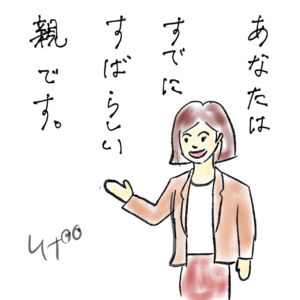 あなたは
すでに
すばらしい
親です。